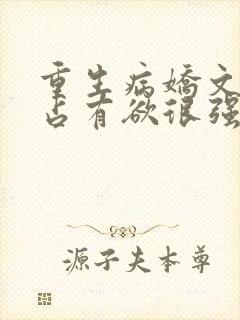 重生病娇文
占有欲很强
源子夫本尊